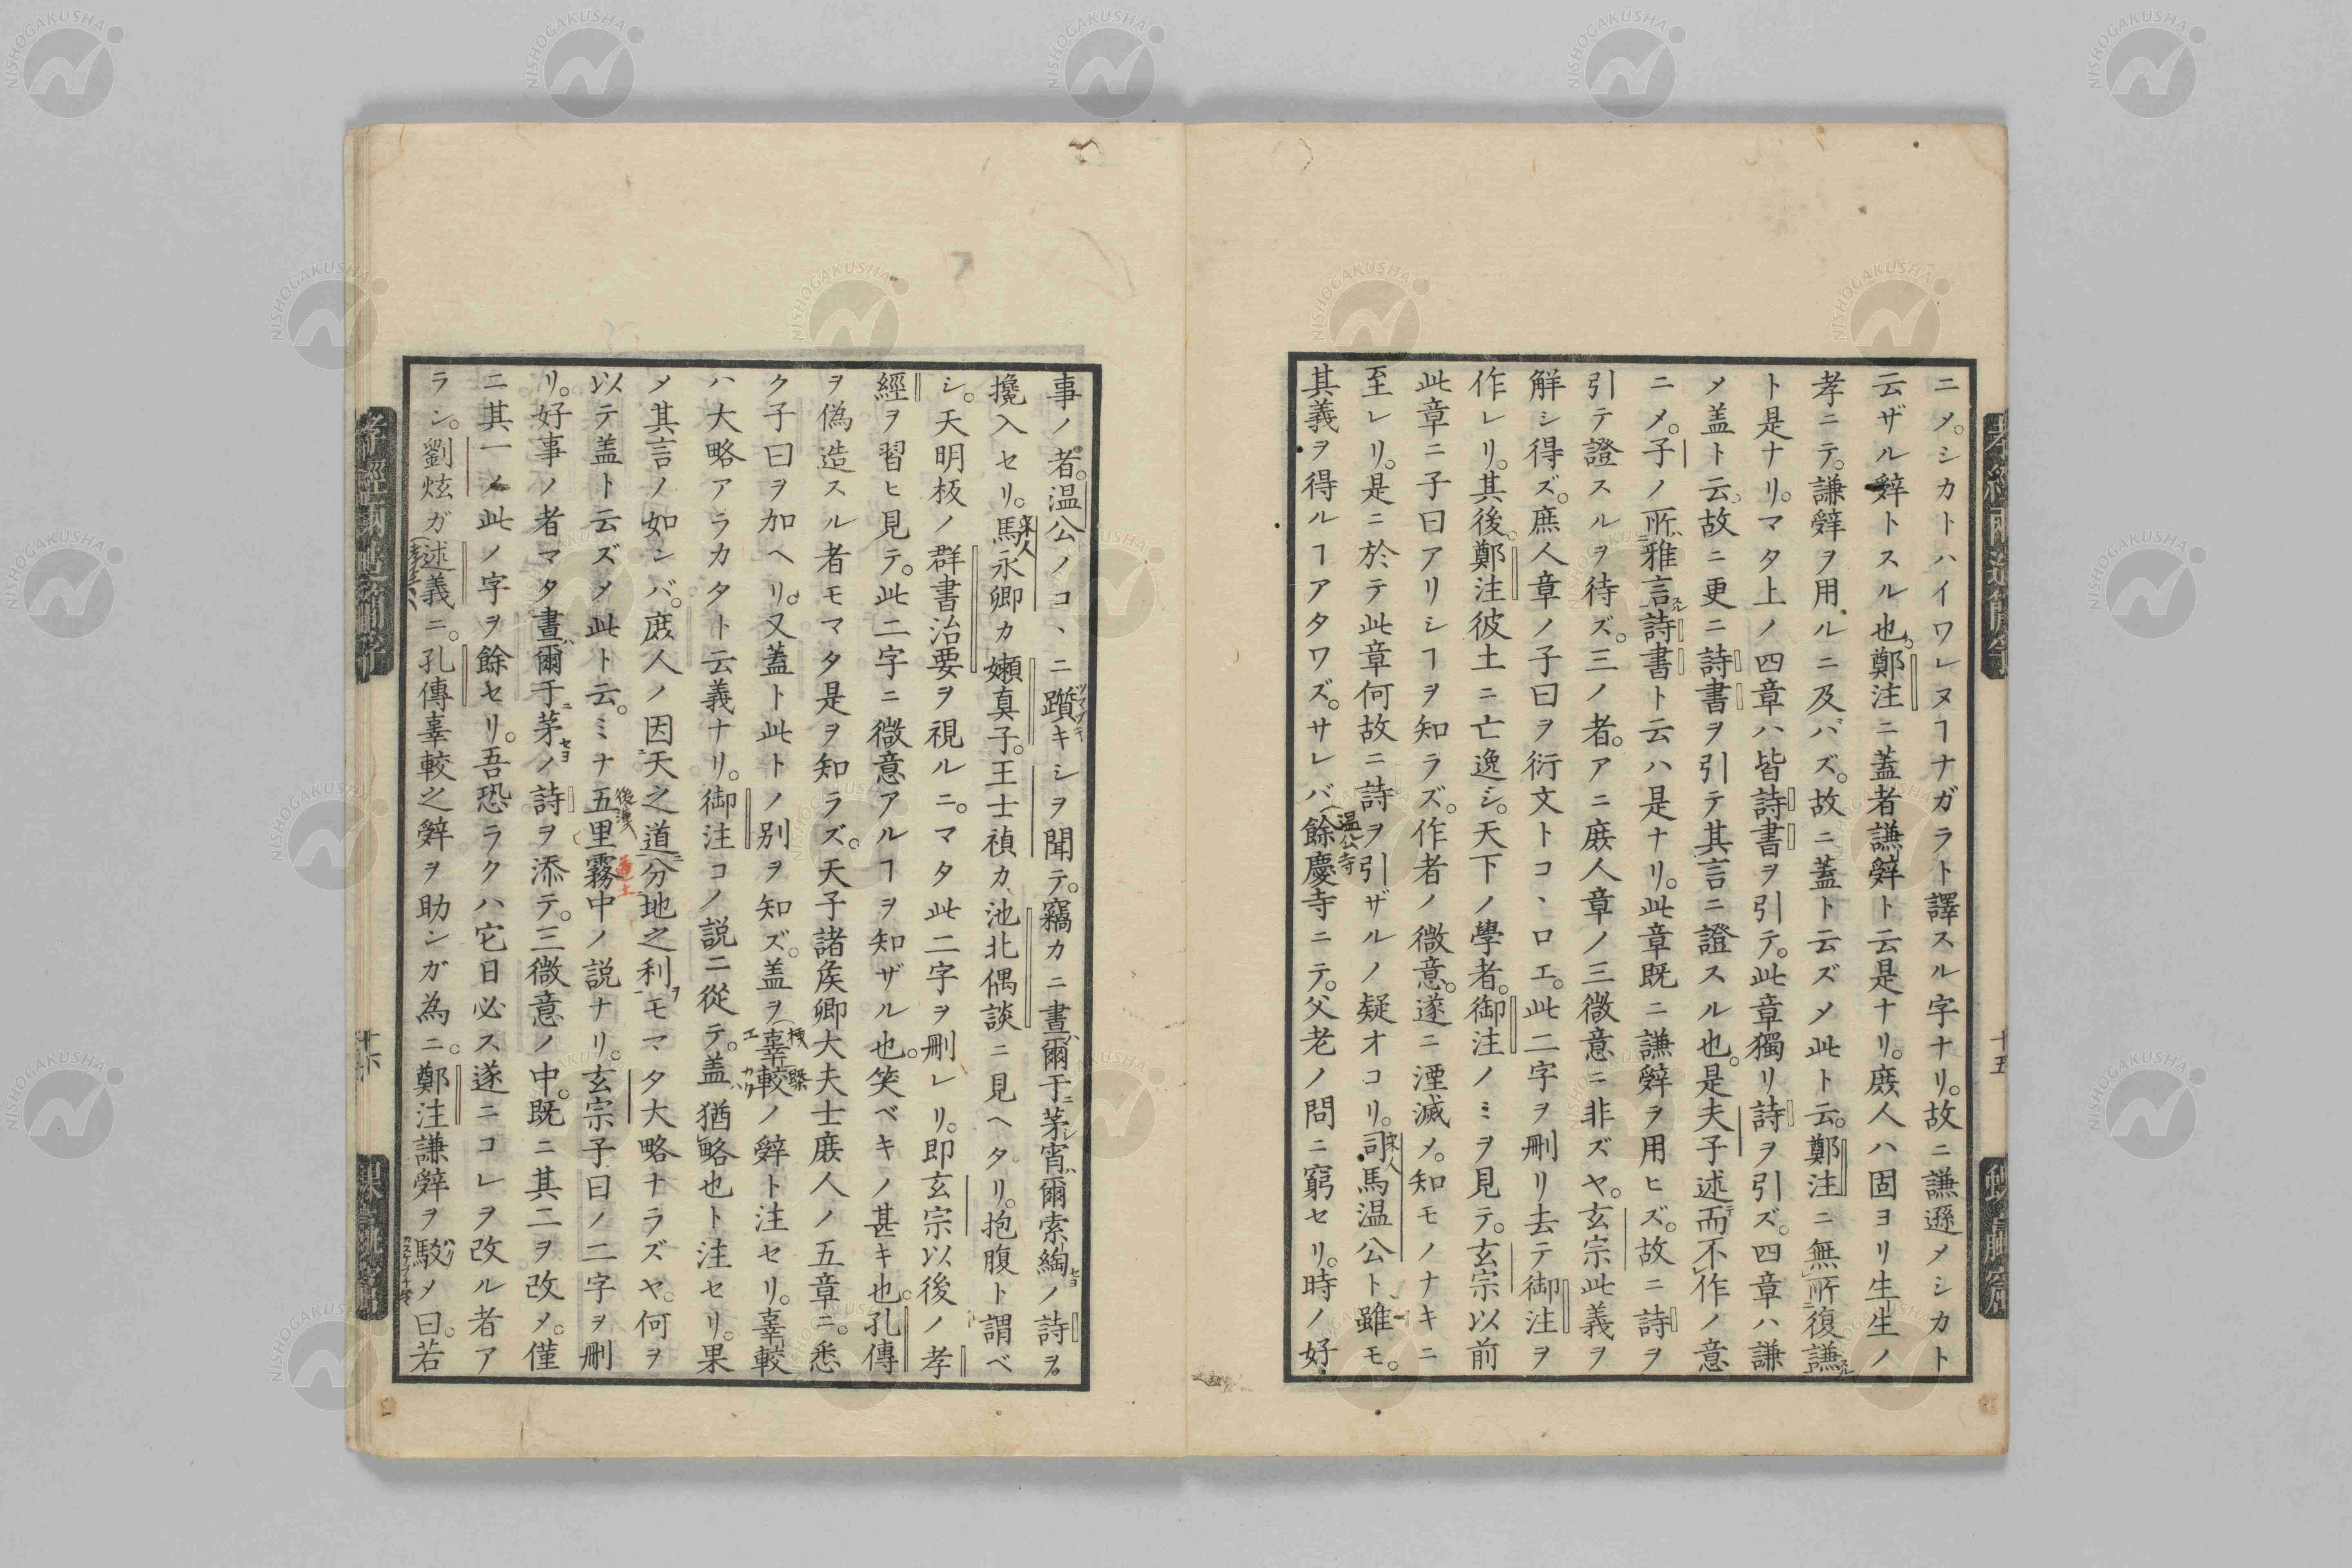 ニメ。シカトハイワレヌヿナガラト譯スル字ナリ。故ニ謙遜メシカト
云ザル辤トスル也。鄭注ニ蓋者謙辤ト云是ナリ。庶人ハ固ヨリ生生ノ
孝ニテ。謙辤ヲ用ルニ及バズ。故ニ蓋ト云ズメ此ト云。鄭注ニ無所復謙
ト是ナリ。マタ上ノ四章ハ皆詩書ヲ引テ。此章獨リ詩ヲ引ズ。四章ハ謙
メ蓋ト云。故ニ更ニ詩書ヲ引テ其言ニ證スル也。是夫子述而不作ノ意
ニメ。子ノ所雅言詩書ト云ハ是ナリ。此章既ニ謙辤ヲ用ヒズ。故ニ詩ヲ
引テ證スルヲ待ズ。三ノ者。アニ庶人章ノ三微意ニ非ズヤ。玄宗此義ヲ
解シ得ズ。庶人章ノ子曰ヲ衍文トコヽロエ。此二字ヲ刪リ去テ御注ヲ
作レリ。其後。鄭注彼土ニ亡逸シ。天下ノ學者。御注ノミヲ見テ。玄宗以前
此章ニ子曰アリシヿヲ知ラズ。作者ノ微意。遂ニ湮滅メ。知モノナキニ
至レリ。是ニ於テ此章何故ニ詩ヲ引ザルノ疑オコリ。司馬温公ト雖モ。
宋人
其義ヲ得ルヿアタワズ。サレバ餘慶寺ニテ。父老ノ問ニ窮セリ。時ノ好
温公寺
十五
事ノ者。温公ノコヽニ躓キシヲ聞テ。竊カニ晝爾于茅宵爾索綯ノ詩ヲ
ツマヅキ
攙入セリ。馬永卿カ嬾真子。王士禎カ池北偶談ニ見ヘタリ。抱腹ト謂ベ
宋人
シ。天明板ノ群書治要ヲ視ルニ。マタ此二字ヲ刪レリ。即玄宗以後ノ孝
經ヲ習ヒ見テ。此二字ニ微意アルヿヲ知ザル也。笑ベキノ甚キ也。孔傳
ヲ偽造スル者モマタ是ヲ知ラズ。天子諸矦卿大夫士庶人ノ五章ニ。悉
ク子曰ヲ加ヘリ。又蓋ト此トノ別ヲ知ズ。盖ヲ辜較ノ辤ト注セリ。辜較
ハ大略アラカタト云義ナリ。御注コノ説ニ從テ。盖猶略也ト注セリ。果
メ其言ノ如シバ。庶人ノ因天之道分地之利モマタ大略ナラズヤ。何ヲ
以テ盖ト云ズメ此ト云。ミナ五里霧中ノ説ナリ。玄宗子曰ノ二字ヲ刪
後漢
道士
リ。好事ノ者マタ晝爾于茅ノ詩ヲ添テ。三微意ノ中。既ニ其二ヲ改メ。僅
ニ其一ノ此ノ字ヲ餘セリ。吾恐ラクハ它日必ス遂ニコレヲ改ル者ア
ラン。劉炫ガ述義ニ。孔傳辜較之辤ヲ助ンガ為ニ。鄭注謙辤ヲ駮メ曰。若